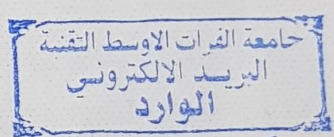 جامعة الفرات الاوسط التقنية
البريد الالكتروني
الوارد